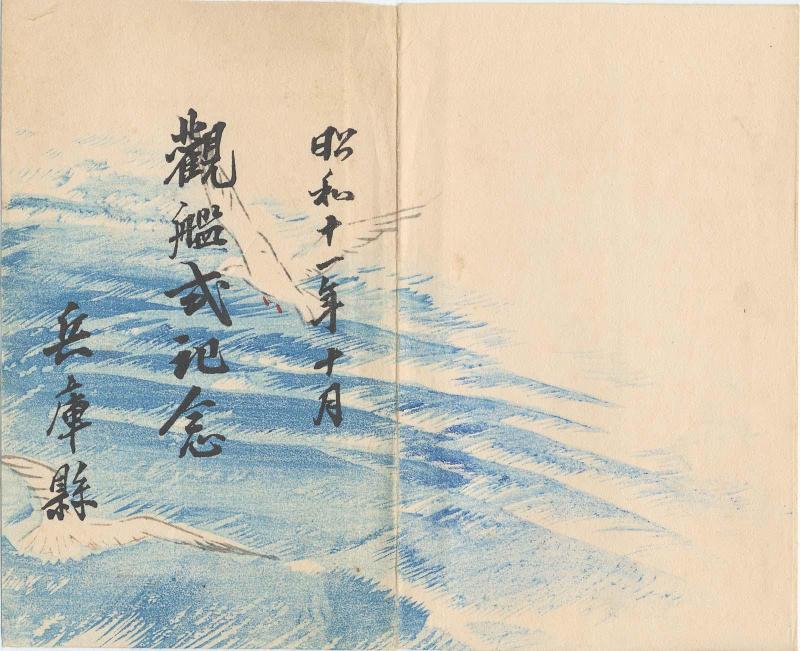 昭和十一年十月
觀艦式記念
兵庫縣